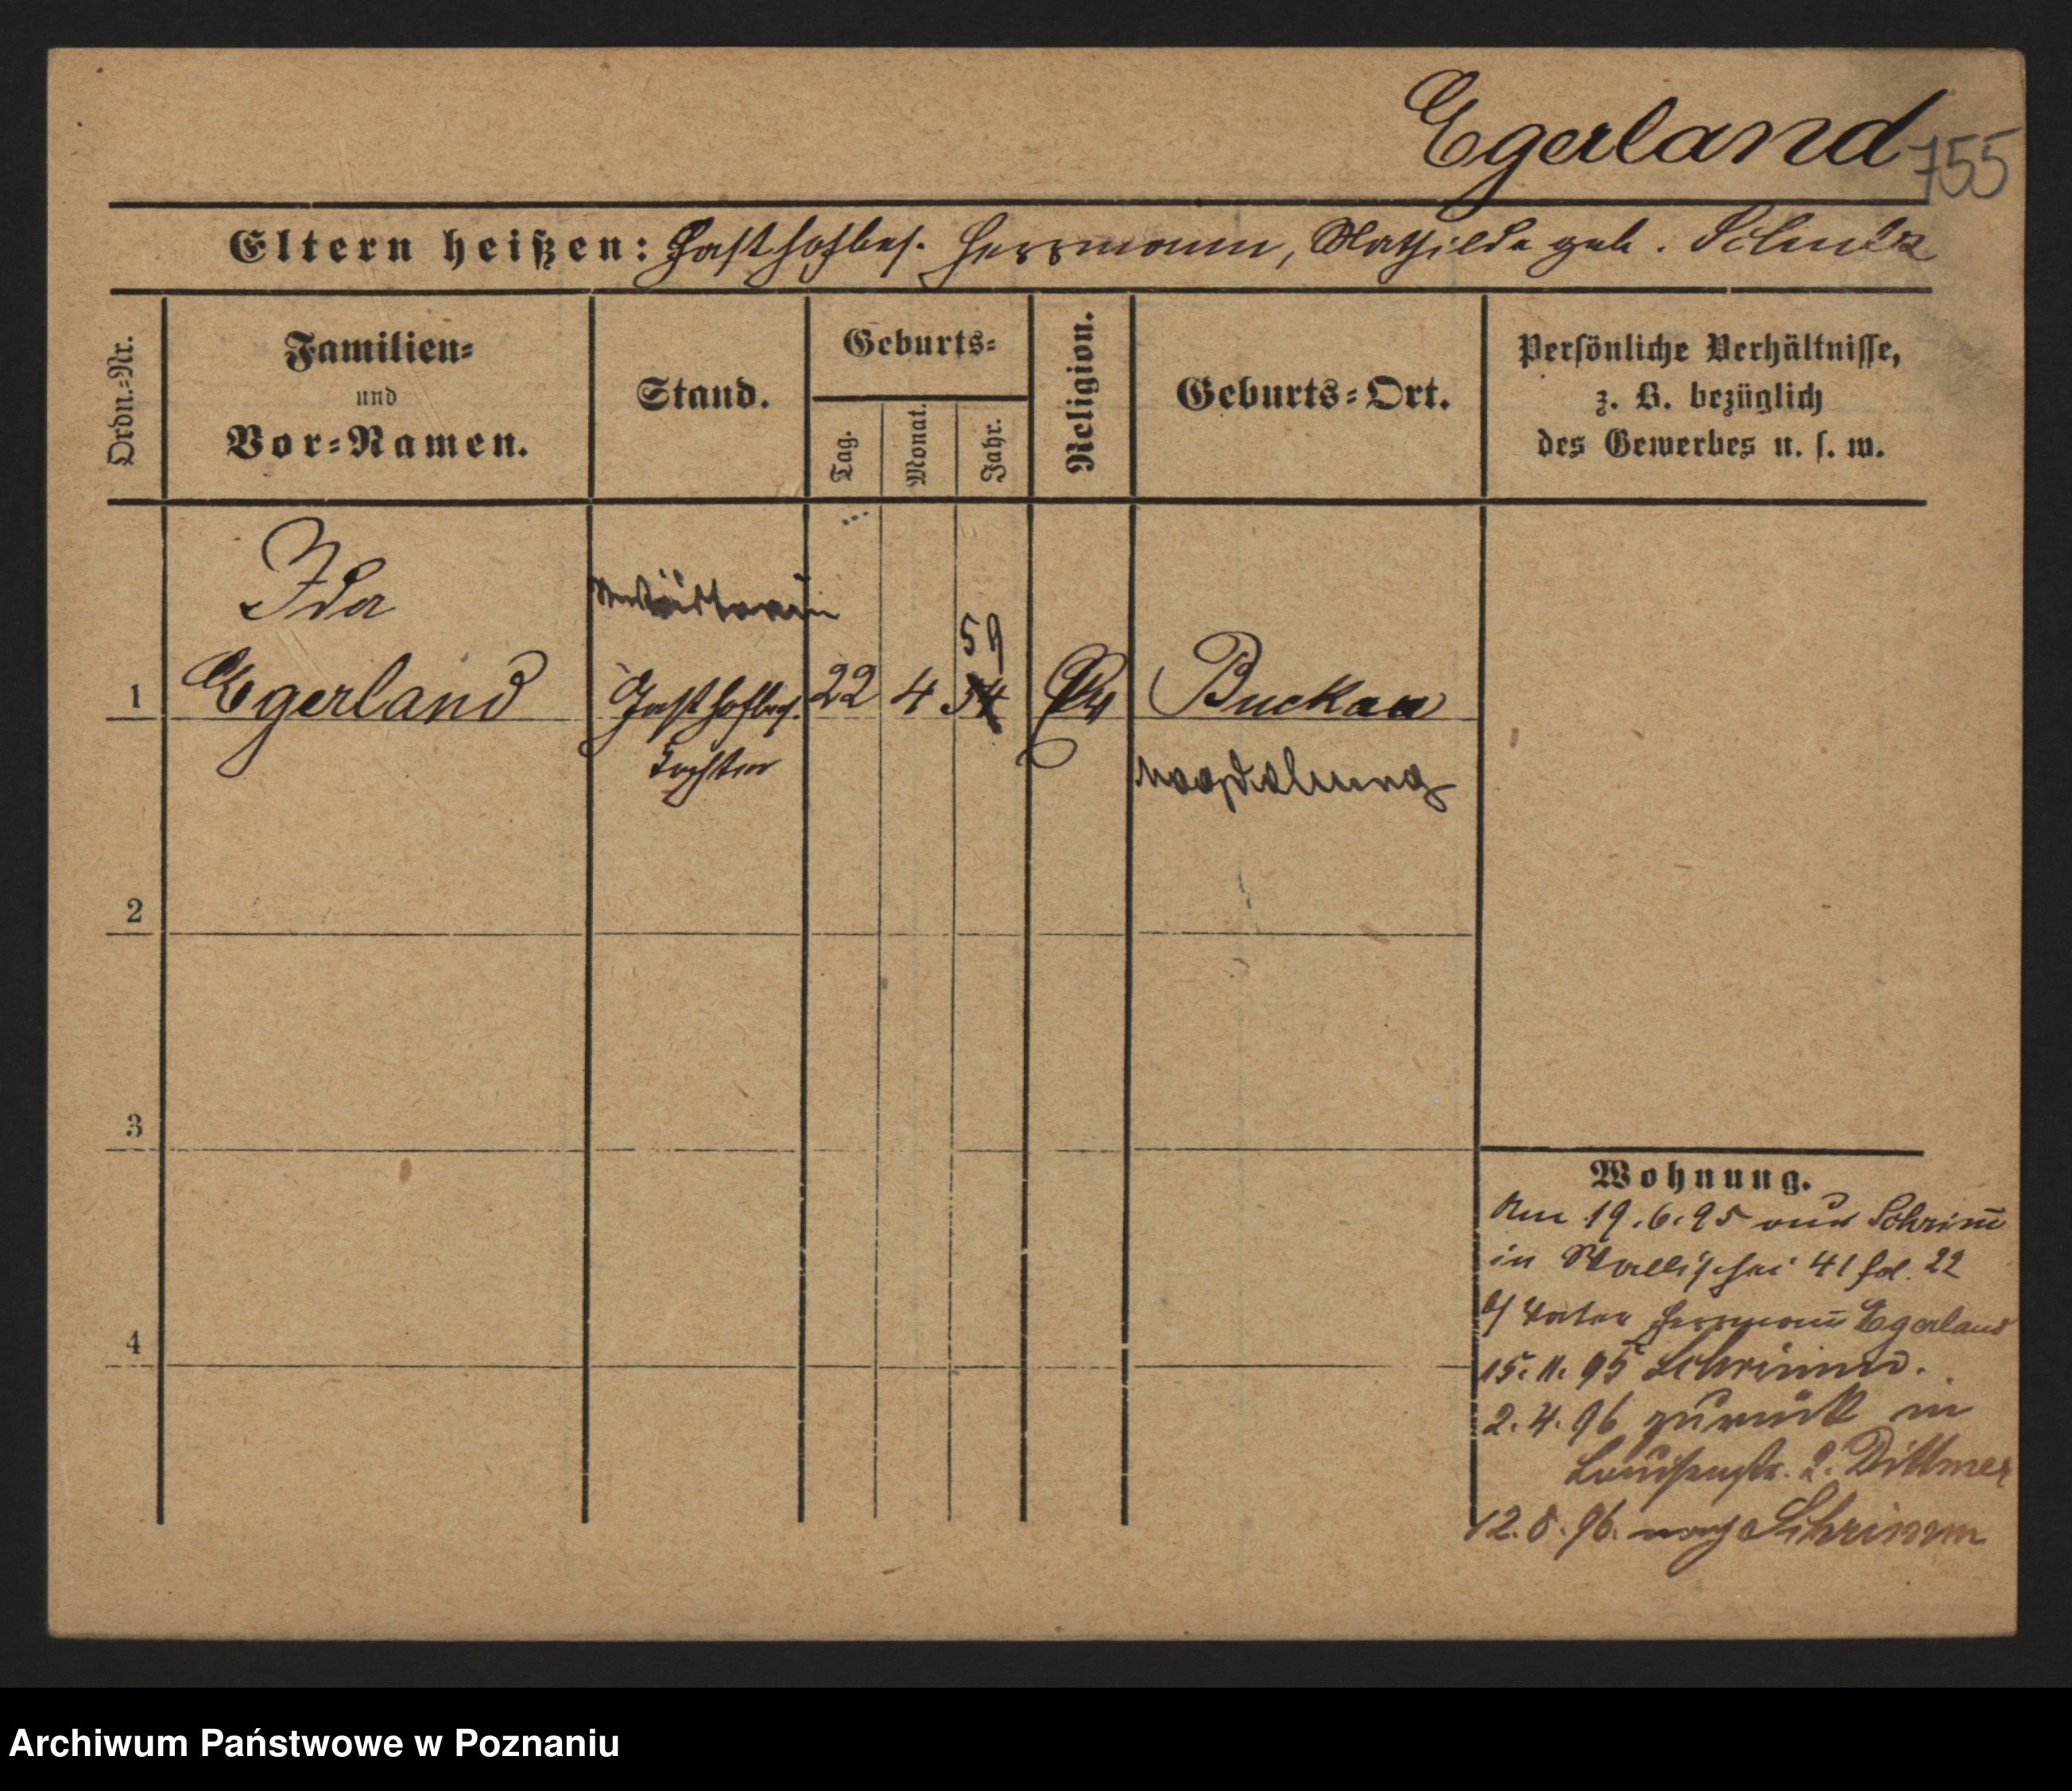 Egerland
755
Eltern heißen: Gasthofbes. Herrmann, Mathilde geb. Schulz
Ordn.-Nr.
Familien-
und
Vor-Namen.
Stand.
Geburts-
Tag.
Monat.
Jahr.
Religion.
Geburts-Ort.
Persönliche Verhältnisse,
z. B. bezüglich
des Gewerbes u. s. w.
Ida
59
1 Egerland Gasthofbes. 22 4 54 Ev Buckau
Tochter Magdeburg
2
3
4
Wohnung.
Am 19.6.95 aus Schrim̄
in Wallischei 41 fol. 22
b/ Vater Herrman̄ Egerland
15.11.95 Schrimm.
2.4.96 zurück in
Louisenstr. 2. Dittmer
12.8.96. nach Schrimm
Archiwum Państwowe w Poznaniu